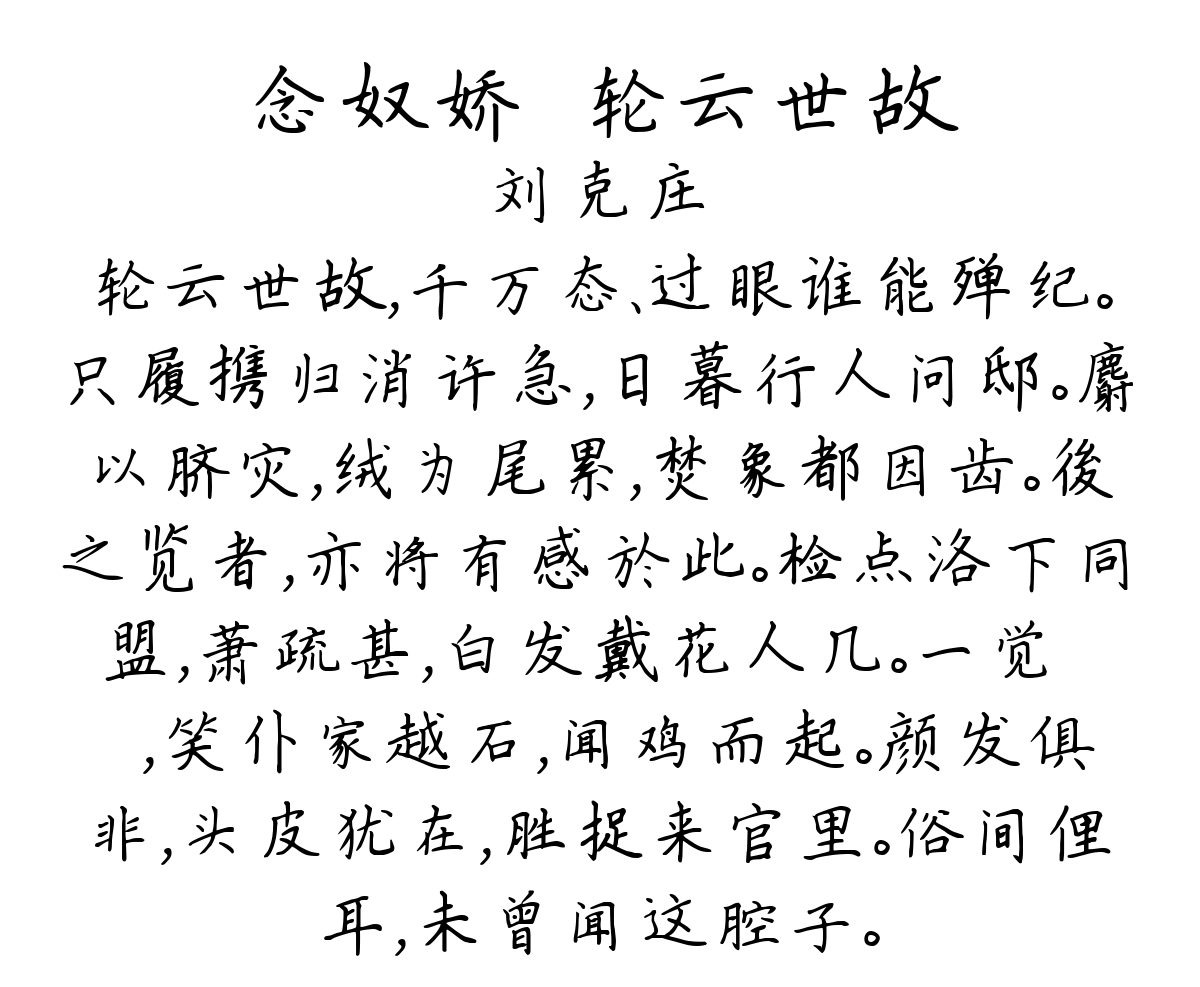 念奴娇 轮云世故
刘克庄
轮云世故,千万态、过眼谁能殚纪。
只履携归消许急,日暮行人问邸。麝
以脐灾,绒为尾累,焚象都因齿。後
之览者,亦将有感於此。检点洛下同
盟,萧疏甚,白发戴花人几。一觉
,笑仆家越石,闻鸡而起。颜发俱
非,头皮犹在,胜捉来官里。俗间俚
耳,未曾闻这腔子。